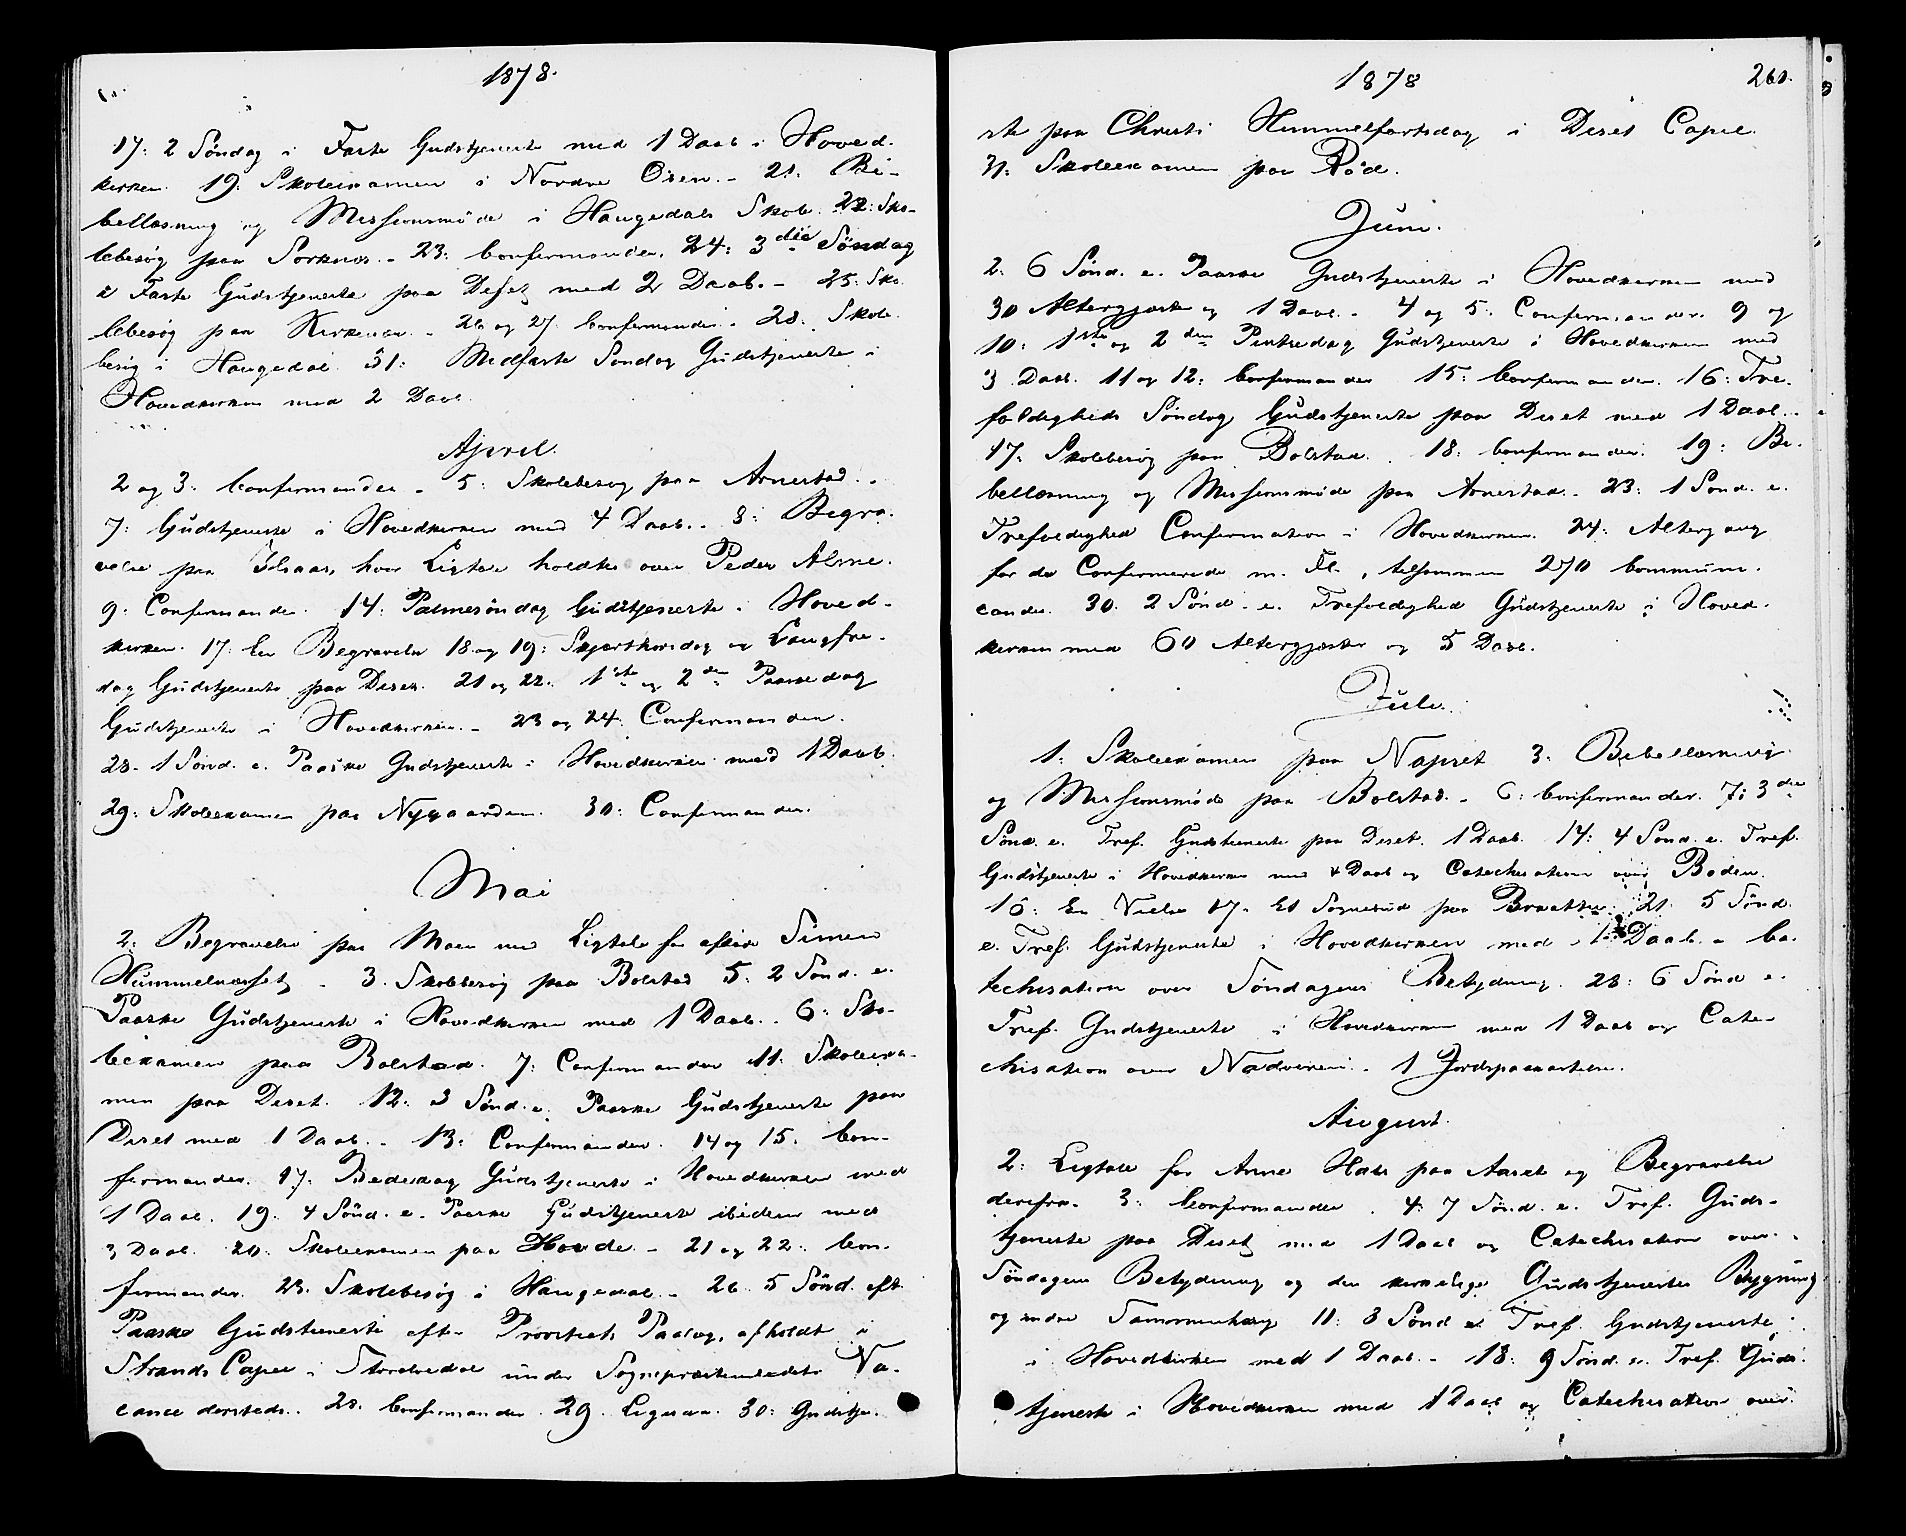 1878.
17: 2 Søndag i Faste Gudstjeneste med 1 Daab i Hoved-
kirken. 19: Skoleexamen i Nordre Osen. - 21: Bi-
bellæsning og Missionsmøde i Haugedals Skole. 22: Sko-
lebesøg paa Sorknæs. - 23: Confirmander. 24: 3die Søndag
i Faste Gudstjeneste paa Deset med 2 Daab. - 25: Sko-
lebesøg paa Kirkenær. - 26 og 27. Confirmander. 28. Skole-
besøg i Haugedal. 31: Midfaste Søndag Gudstjeneste i
Hovedkirken med 2 Daab.
April.
2 og 3: Confirmander. - 5: Skolebesøg paa Arnestad. -
7: Gudstjeneste i Hovedkirken med 4 Daab. - 8: Begra-
velse paa hvor Ligtale holdtes over Peder Alme.
9: Confirmander. 14: Palmesøndag Gudstjeneste i Hoved-
kirken. 17: En Begravelse 18 og 19: Skjærthorsdag og Langfre-
dag Gudstjeneste paa Deset. 21 og 22. 1ste og 2den Paaskedag
Gudstjeneste i Hovedkirken. - 23 og 24. Confirmander.
28. 1 Sønd. e. Paaske Gudstjeneste i Hovedkirken med 1 Daab.
29: Skoleexamen paa Nygaarden. 30: Confirmander.
Mai
2: Begravelse paa Moen med Ligtale for afdøde Simen
Hummelnæsset. - 3. Skolebesøg paa Bolstad 5: 2 Sønd. e.
Paaske Gudstjeneste i Hovedkirken med 1 Daab. - 6: Sko-
leexamen paa Bolstad. 7: Confirmander 11: Skoleexa-
men paa Deset. 12: 3 Sønd. e. Paaske Gudstjeneste paa
Deset med 1 Daab. - 13: Confirmander. 14 og 15. Con-
firmander. 17: Bededag Gudstjeneste i Hovedkirken med
1 Daab. 19: 4 Sønd. e. Paaske Gudstjeneste ibidem med
3 Daab. 20: Skoleexamen paa Hovde. - 21 og 22: Con-
firmander. 23. Skolebesøg i Haugedal. - 26. 5 Sønd. eft.
Paaske Gudstjeneste efter Provstiets Paalæg, afholdt i
Strands Capel i Storelvedal under Sognepræsteembedets Va-
cance dersteds. 28. Confirmander. 29. 30: Gudstje-
1878
261.
ste paa Christi Himmelfartsdag i Deset Capel.
31: Skoleexamen paa Rød.
Juni.
2: 6 Sønd. e. Paaske Gudstjeneste i Hovedkirken med
30 Altergjæster og 1 Daab. - 4 og 5. Confirmander. 9 og
10: 1ste og 2den Pintsedag Gudstjeneste i Hovedkirken med
3 Daab. 11 og 12: Confirmander 15: Confirmander. 16: Tre-
foldigheds Søndag Gudstjeneste paa Deset med 1 Daab. -
17: Skolebesøg paa Bolstad. 18: Confirmander. 19: Bi-
bellæsning og Missionsmøde paa Arnestad. - 23: 1 Sønd. e.
Trefoldighed Confirmation i Hovedkirken. 24: Altergang
for de Confirmerede m. Fl., tilsammen 270 Commúni-
cander. 30. 2 Sønd. e. Trefoldighed Gudstjeneste i Hoved-
kirken med 60 Altergjæster og 5 Daab.
Juli.
1: Skoleexamen paa Næpset 3: Bibellæsning
og Missionsmøde paa Bolstad. - 6: Confirmander. 7: 3die
Sønd. e. Tref. Gudstjeneste paa Deset. 1 Daab. 14: 4 Sønd. e. Tref.
Gudstjeneste i Hovedkirken med 4 Daab og Catechisation over Boden.
16: En Vielse 17: Et Sognebud paa Braatten. 21: 5 Sønd.
e. Tref. Gudstjeneste i Hovedkirken med 1 Daab. - Ca-
techisation over Søndagens Betydning. 28: 6 Sønd e.
Tref. Gudstjeneste i Hovedkirken med 1 Daab og Cate-
chisation over Nadveren. - 1 Jordspaakastelse.
August.
2: Ligtale for Arne paa Aaset og Begravelse
derefra. 3: Confirmander. 4: 7 Sønd. e. Tref. Guds-
tjeneste paa Deset med 1 Daab og Catechisation over
Søndagens Betydning og den kirkelige Gudstjenestes Bygning
og indre Sammenhæng 11: 8 Sønd e. Tref. Gudstjeneste
i Hovedkirken med 1 Daab. - 18: 9 Sønd. e. Tref. Guds-
tjeneste i Hovedkirken med 1 Daab og Catechisation over